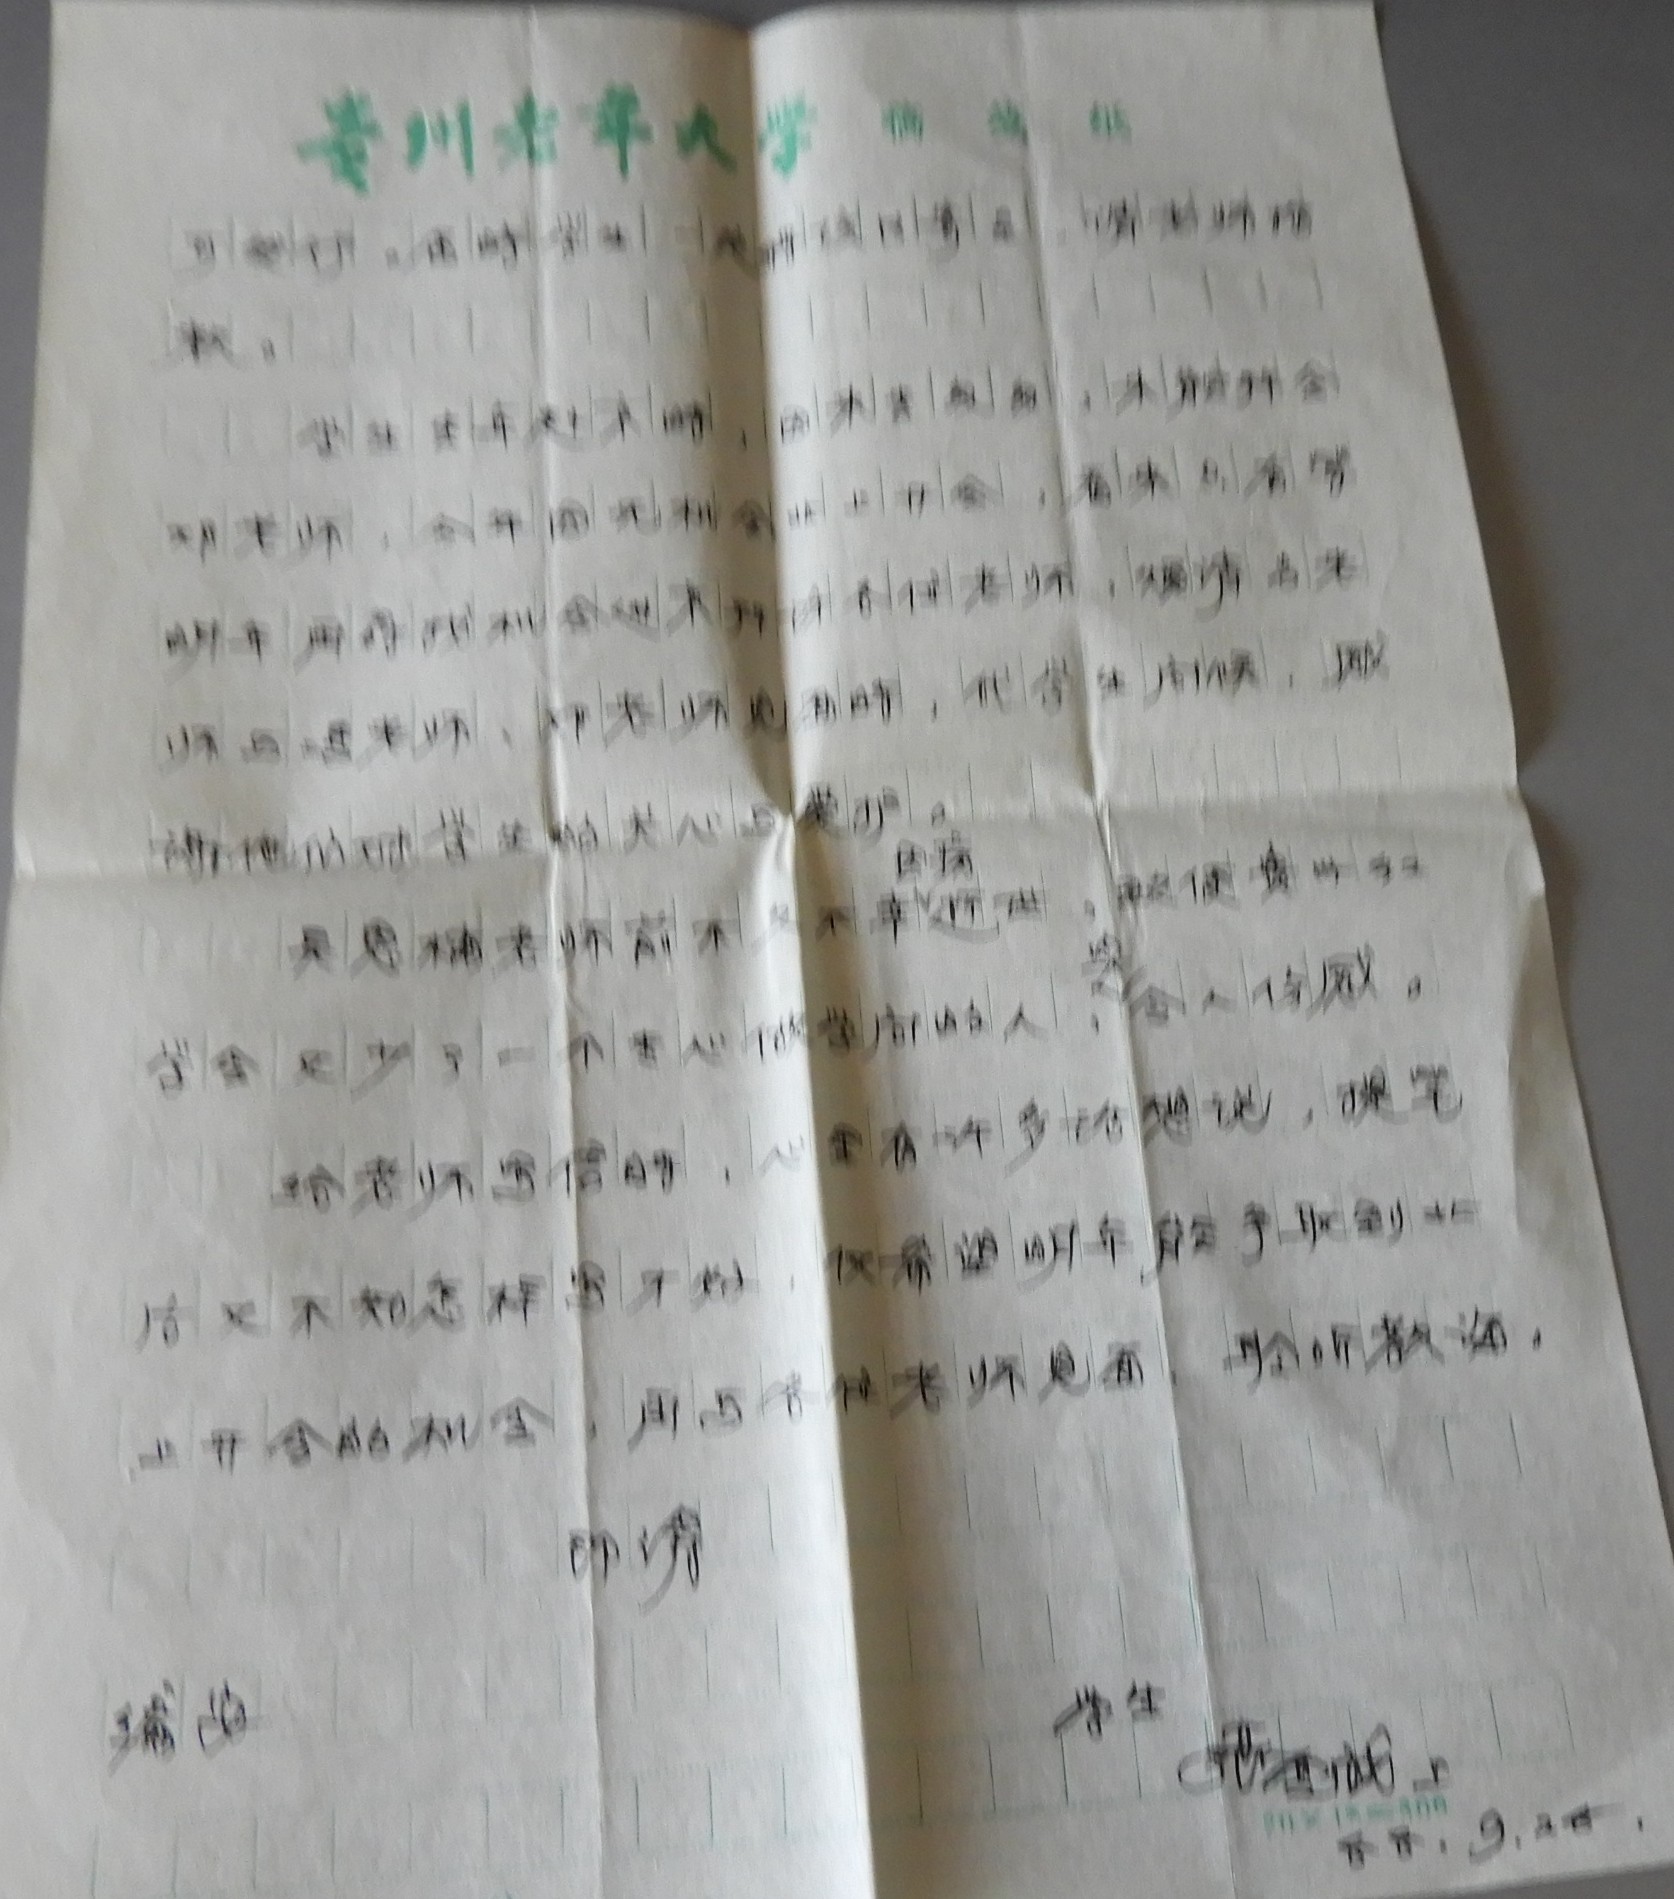 贵州老年大学 稿 纸
可进行。届时学生 请老师
教。
学生去年赴京时,因来去匆匆,未能拜会
邓老师,今年因无机会北上开会,看来只有等
明年再寻找机会进京拜访各位老师,烦请老
师与 老师、 老师见面时,代学生问候,感
谢他们对学生的关心与爱护。
吴恩 老师前不久不幸因病逝世,致使贵州
学会又少了一个专心做学问的人,实令人伤感。
给老师写信时,心里有许多话想说,提笔
后又不知怎样写才好,仅希望明年能争取到北
上开会的机会,再与各位老师见面,聆听教诲。
即请
学生
上
20×15=300
9.25.